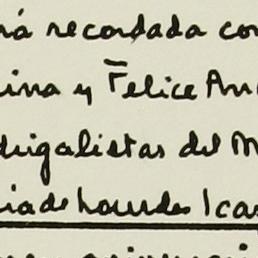 rá recordada con
ina y Felice An
drigalistas del M
ia de Lourdes Icas